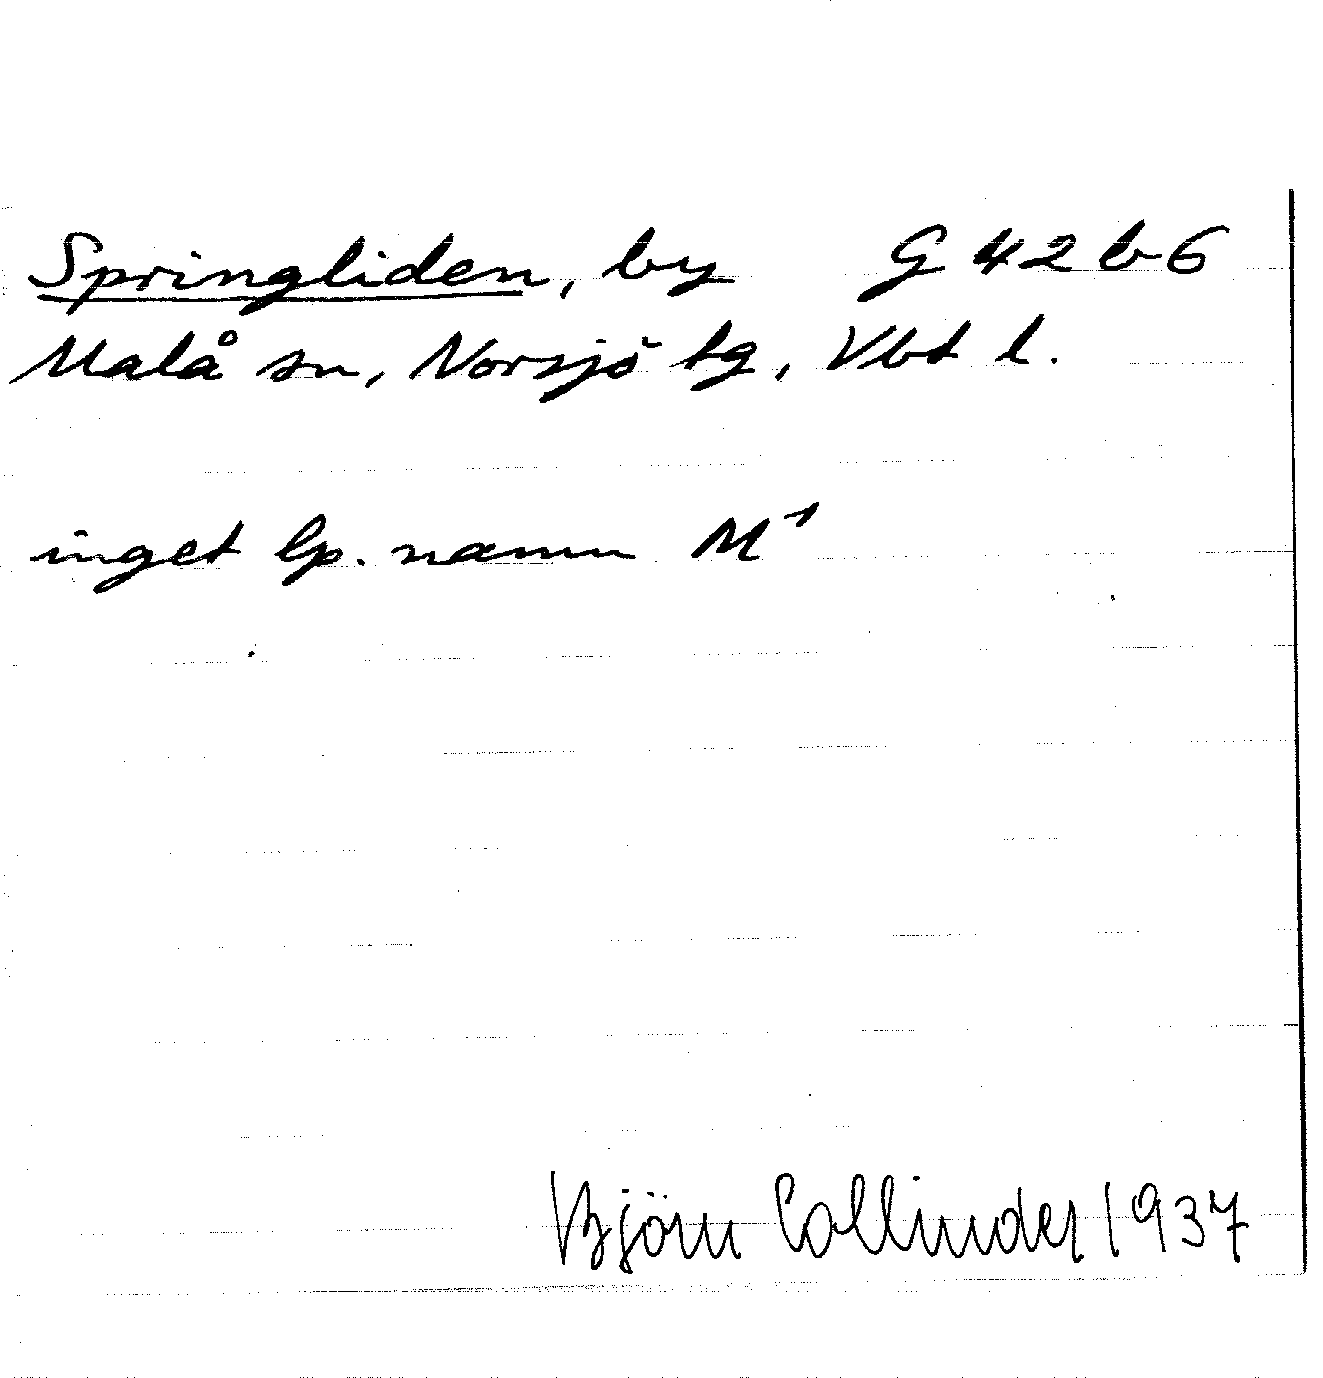 Springliden, by G 42 b 6
Malå sn, Norsjö tg, Vbt l.
inget lp. namn M¹
Björn Collinder 1937